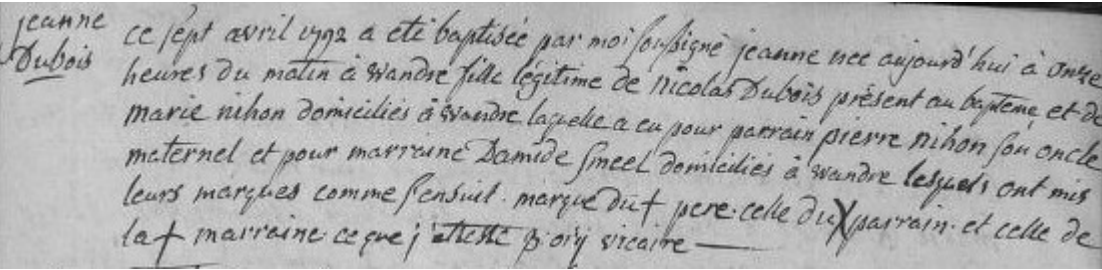 jeanne
Dubois
ce sept avril 1792 a eté baptisée par moi soussigné jeanne nee aujourd'hui à onze
heures du matin à wandre fille légitime de nicolas Dubois présent au bapteme et de
marie nihon domiciliés à wandre laquelle a eu pour parrain pierre nihon son oncle
maternel et pour marraine Damide smeel domiciliés à wandre lesquels ont mis
leurs marques comme s'ensuit. marque du + pere. celle du X parrain. et celle de
la + marraine. ce que j'atteste vicaire